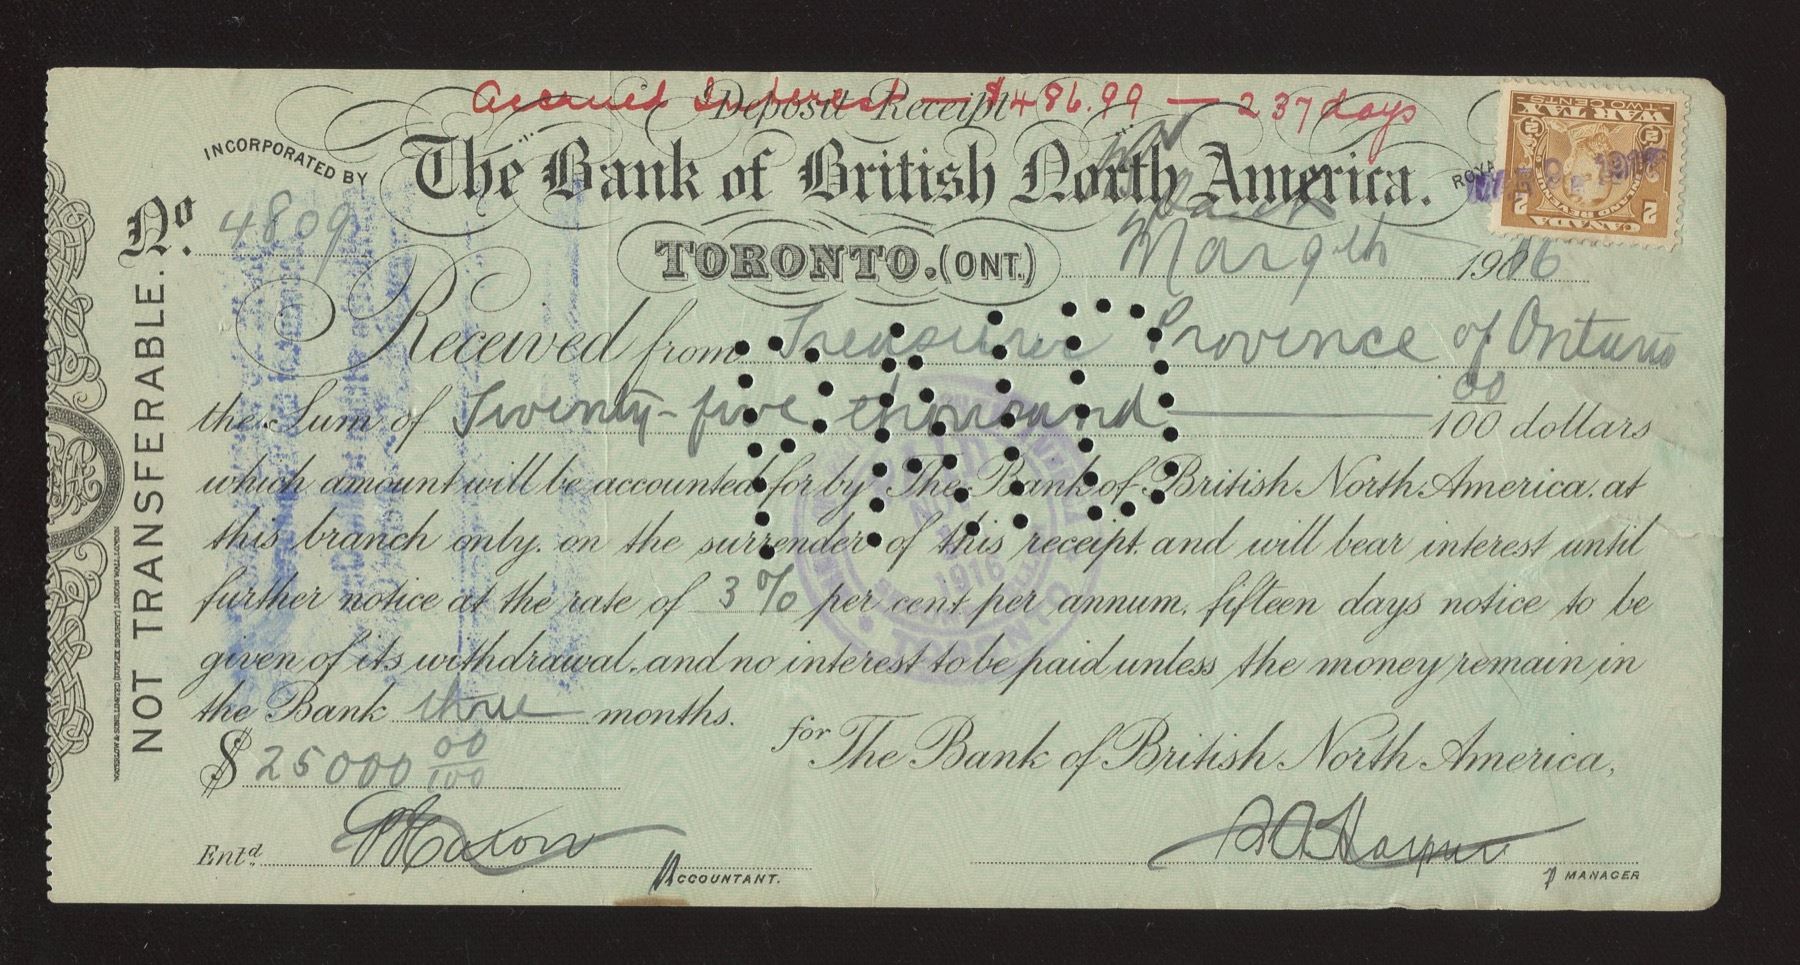 Accrued Interest — $486.99 — 237 days
Deposit Receipt
INCORPORATED BY
The Bank of British North America.
No. 4809
TORONTO. (ONT.)
Mar 9th 1916
Received from Treasurer Province of Ontario
the Sum of Twenty-five thousand 00/100 dollars
which amount will be accounted for by The Bank of British North America. at
this branch only. on the surrender of this receipt. and will bear interest until
further notice at the rate of 3 % per cent per annum. fifteen days notice to be
given of its withdrawal. and no interest to be paid unless the money remain in
the Bank three months.
for The Bank of British North America,
$ 25000 00/100
Entd.
ACCOUNTANT.
MANAGER
NOT TRANSFERABLE.
WATERLOW & SONS LIMITED DUPLEX SECURITY LONDON WALL LONDON
CANADA
INLAND REVENUE
WAR TAX
TWO CENTS
2 2
1916
TORONTO
PAID